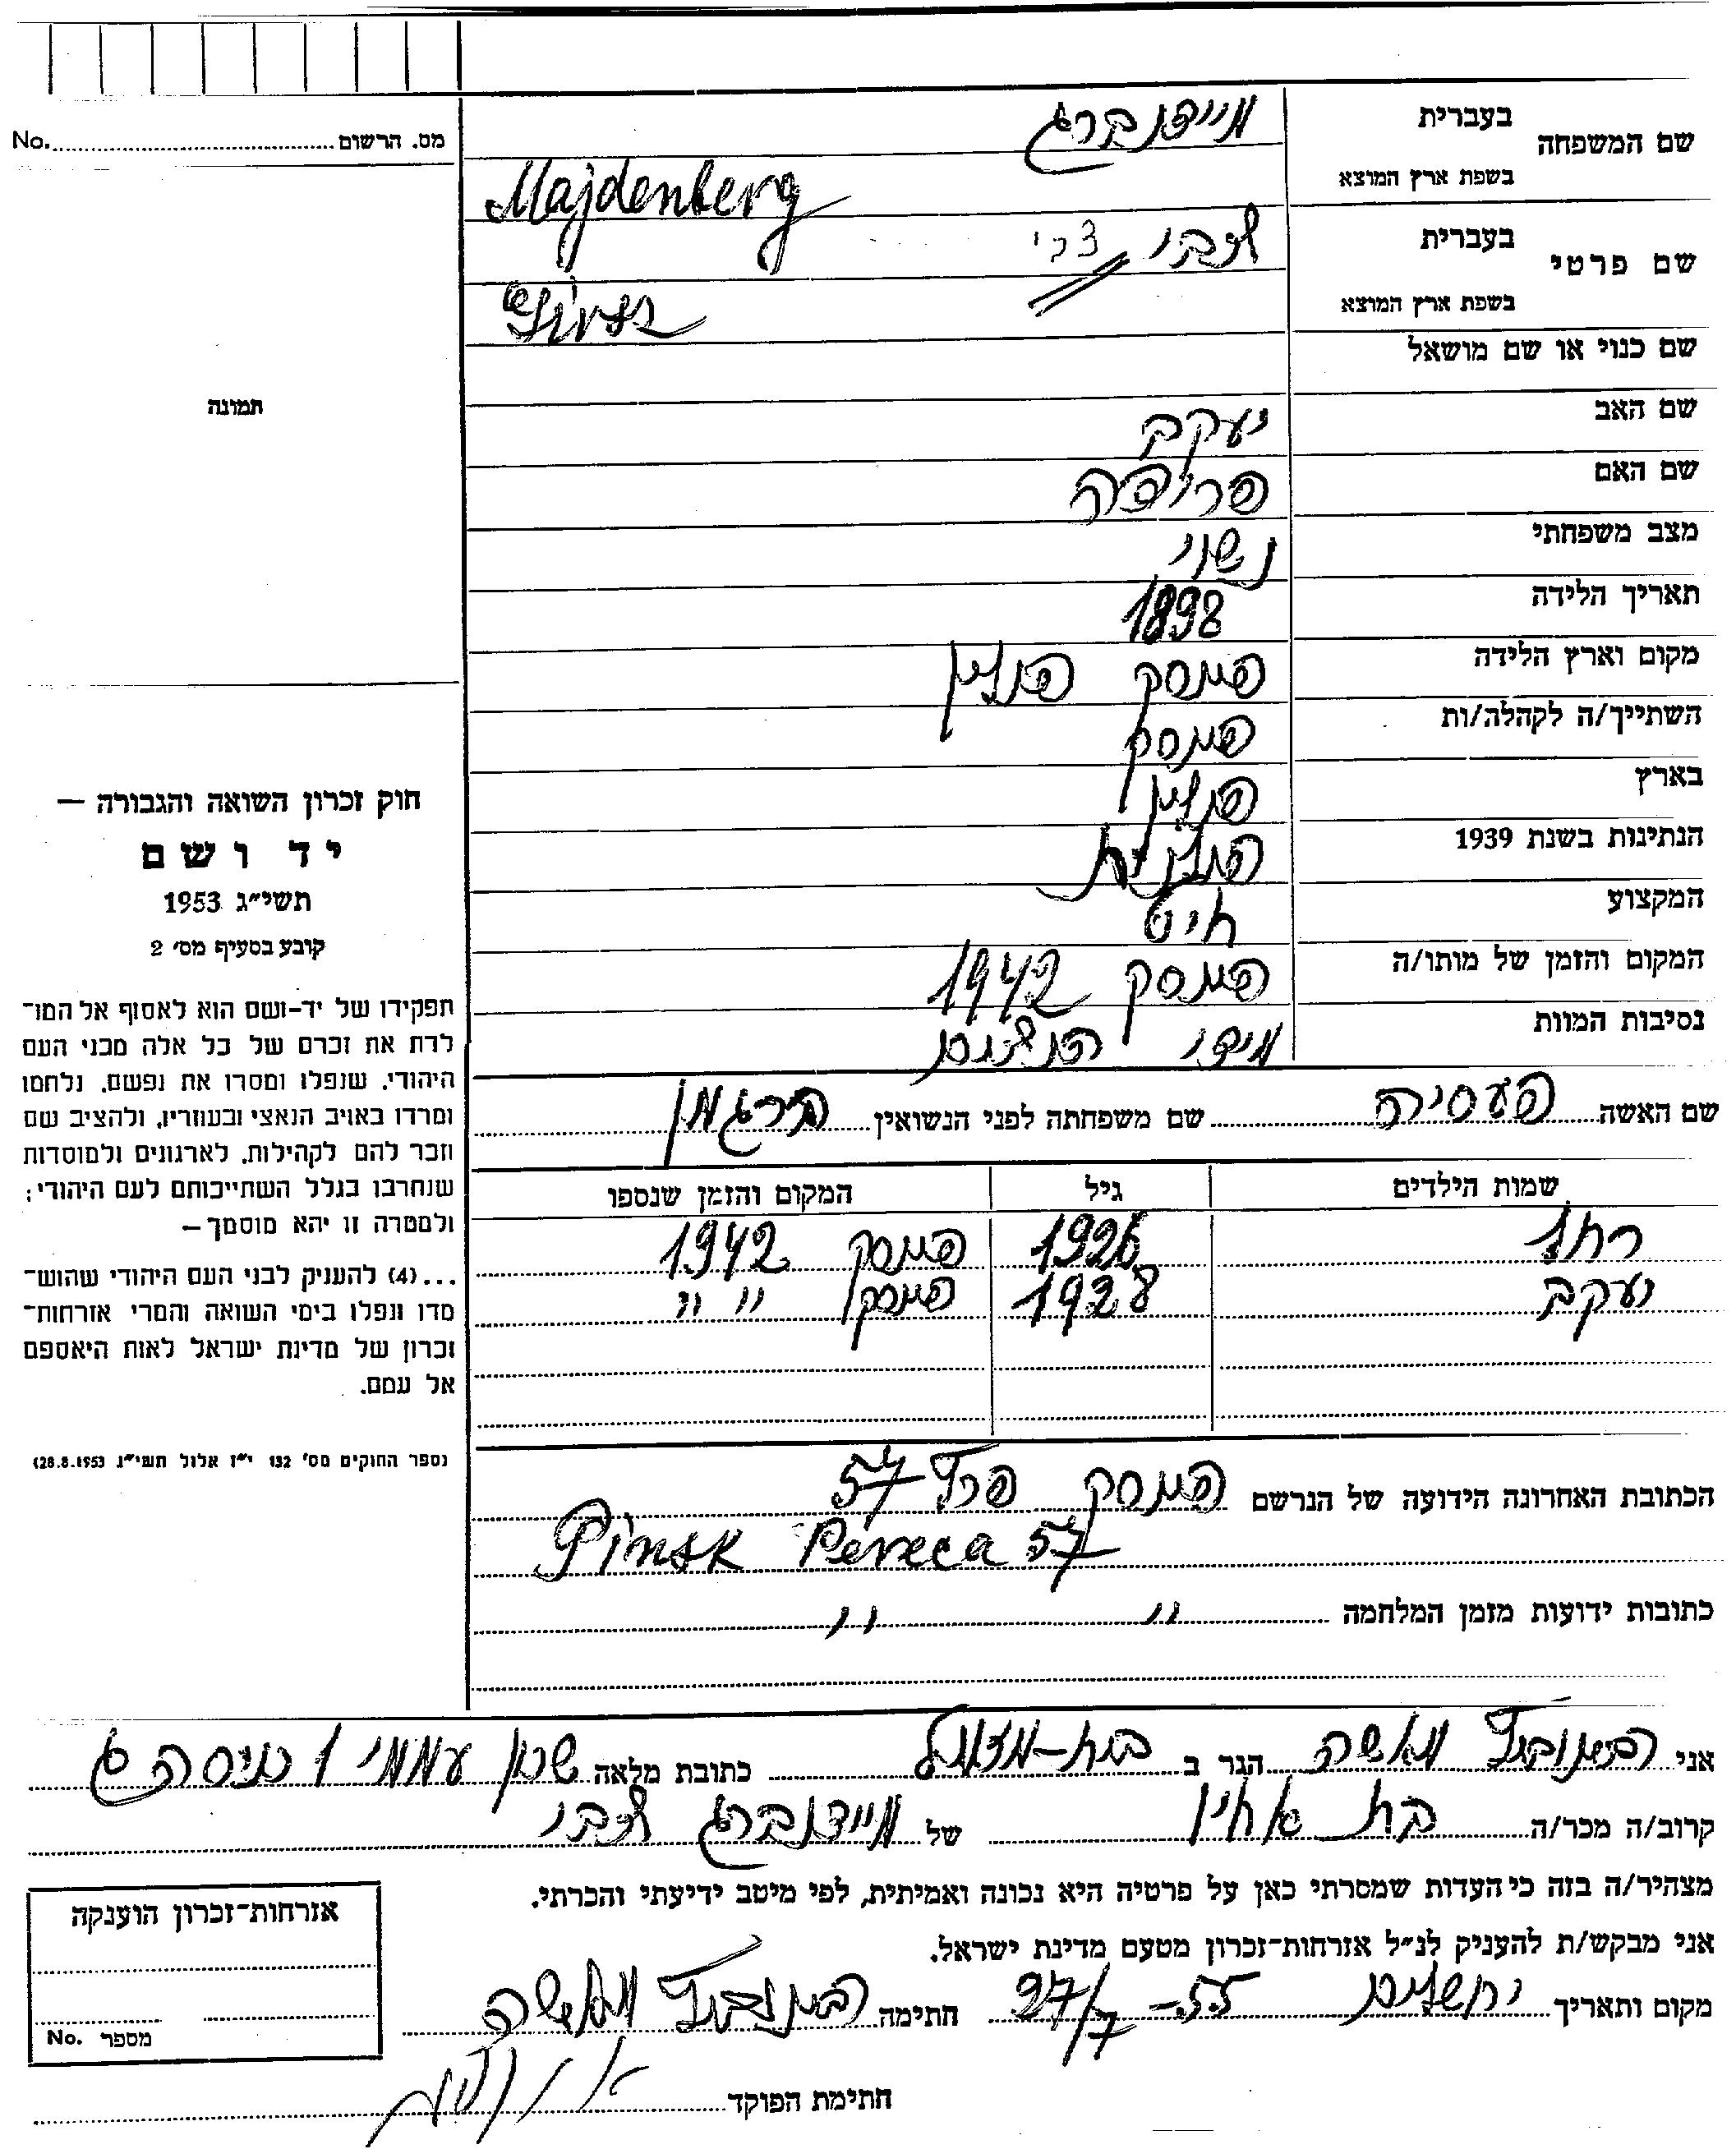 שם המשפחה
בעברית
מיידנברג
בשפת ארץ המוצא
Majdenberg
שם פרטי
בעברית
צבי
צבי
בשפת ארץ המוצא
שם כנוי או שם מושאל
שם האב
יעקב
שם האם
פרומה
מצב משפחתי
נשוי
תאריך הלידה
1898
מקום וארץ הלידה
פינסק פולין
השתייך/ה לקהלה/ות
פינסק
בארץ
פולין
הנתינות בשנת 1939
פולנית
המקצוע
חיט
המקום והזמן של מותו/ה
פינסק 1942
נסיבות המוות
מידי הנאצים
שם האשה פעסיה שם משפחתה לפני הנשואין בירגמן
שמות הילדים גיל המקום והזמן שנספו
רחל 1926 פינסק 1942
יעקב 1928 פינסק " "
הכתובת האחרונה הידועה של הנרשם פינסק פרץ 57
Pinsk Pereca 57
כתובות ידועות מזמן המלחמה " "
מס. הרשום No.
תמונה
חוק זכרון השואה והגבורה —
יד ושם
תשי״ג 1953
קובע בסעיף מס׳ 2
תפקידו של יד-ושם הוא לאסוף אל המו־
לדת את זכרם של כל אלה מבני העם
היהודי, שנפלו ומסרו את נפשם, נלחמו
ומרדו באויב הנאצי ובעוזריו, ולהציב שם
וזכר להם לקהילות, לארגונים ולמוסדות
שנחרבו בגלל השתייכותם לעם היהודי;
ולמטרה זו יהא מוסמך —
...(4) להעניק לבני העם היהודי שהוש־
מדו ונפלו בימי השואה והמרי אזרחות־
זכרון של מדינת ישראל לאות היאספם
אל עמם.
(ספר החוקים מס׳ 132 י״ז אלול תשי״ג 28.8.1953)
אני משה הגר ב כתובת מלאה שכון עממי 1 כניסה ג
קרוב/ה מכר/ה בת אחין של מיידנברג צבי
מצהיר/ה בזה כי העדות שמסרתי כאן על פרטיה היא נכונה ואמיתית, לפי מיטב ידיעתי והכרתי.
אני מבקש/ת להעניק לנ״ל אזרחות־זכרון מטעם מדינת ישראל.
מקום ותאריך ירושלים 27/7-55 חתימה
חתימת הפוקד
אזרחות־זכרון הוענקה
מספר No.